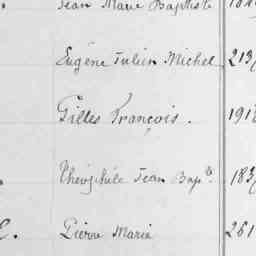 Jean Marie Baptiste
Eugène Julien Michel 213
Gilles François. 191
Théophile Jean Bapte. 183
E. Pierre Marie 261